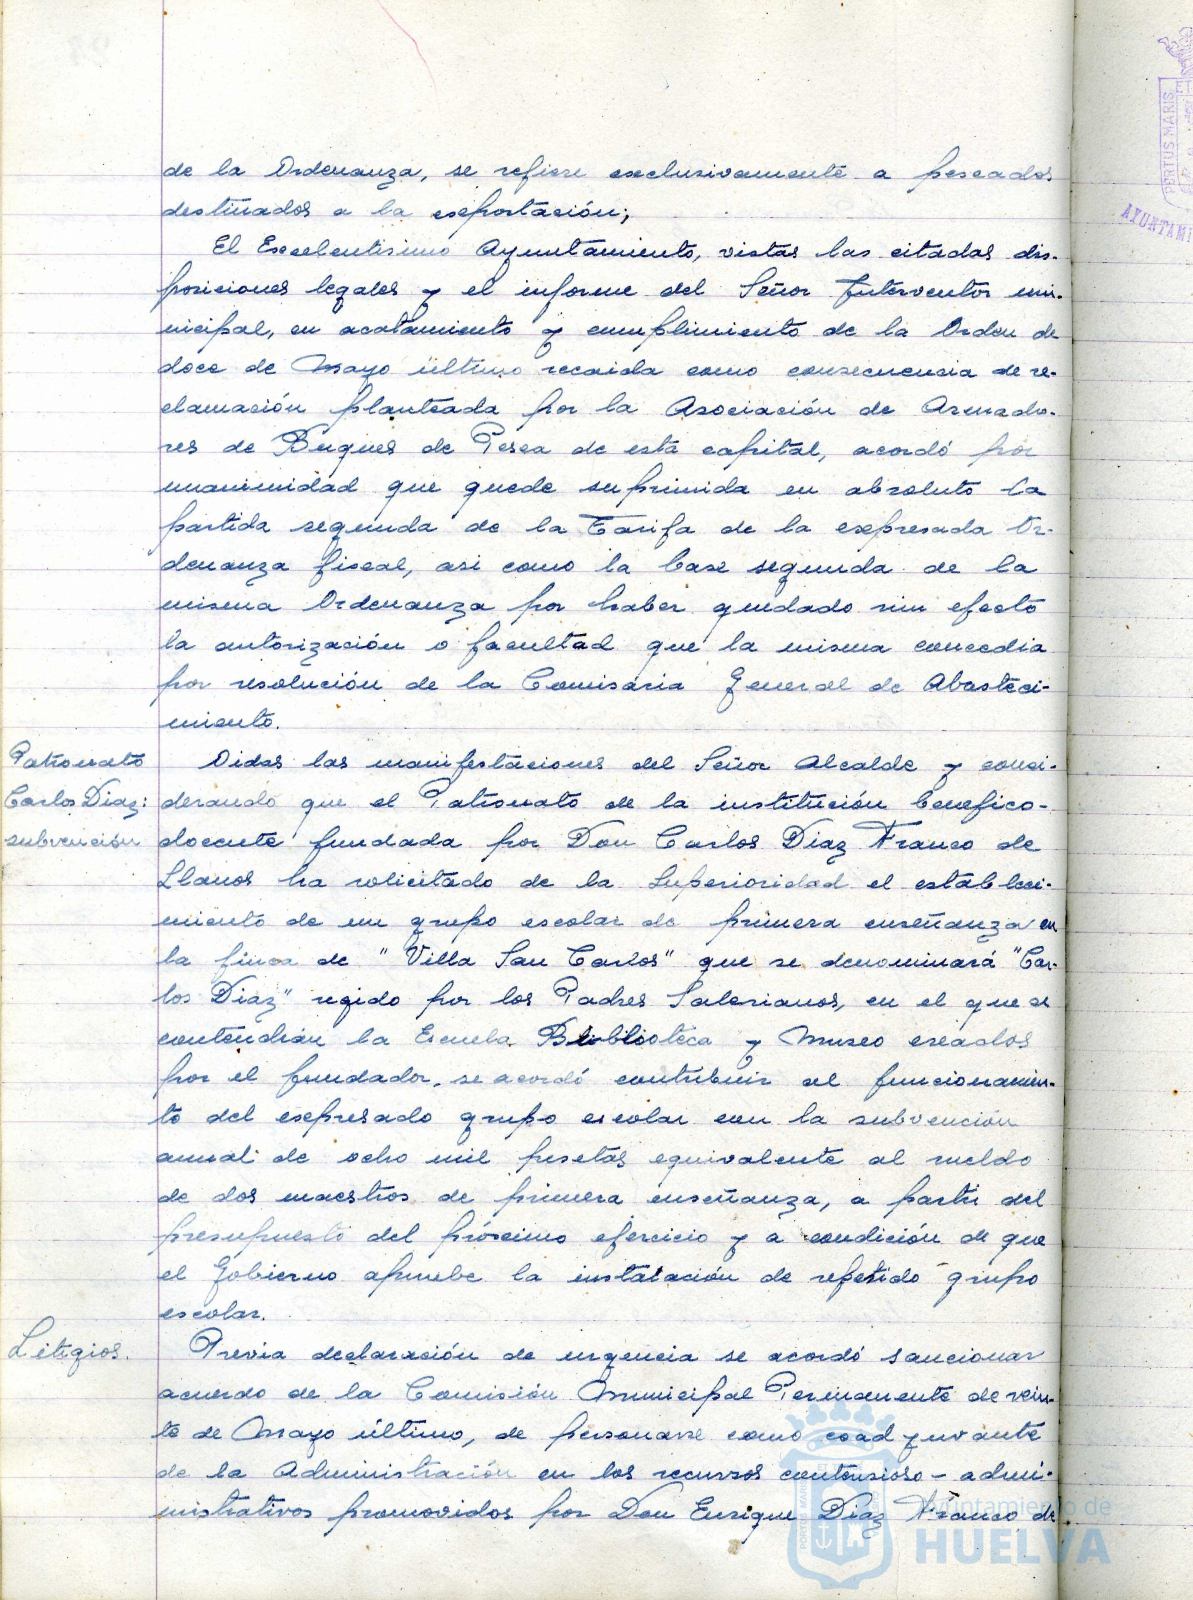 de la Ordenanza, se refiere exclusivamente a pescados
destinados a la exportación;
El Excelentisimo Ayuntamiento, vistas las citadas dis-
posiciones legales y el informe del Señor Interventor mu-
nicipal, en acatamiento y cumplimiento de la Orden de
doce de Mayo último recaida como consecuencia de re-
clamación planteada por la Asociación de Armado-
res de Buques de Pesca de esta capital, acordó por
unanimidad que quede suprimida en absoluto la
partida segunda de la Tarifa de la expresada Or-
denanza fiscal, asi como la base segunda de la
misma Ordenanza por haber quedado sin efecto
la autorización o facultad que la misma concedia
por resolución de la Comisaria General de Abasteci-
miento.
Patronato
Carlos Diaz:
subvención
Oidas las manifestaciones del Señor Alcalde y consi-
derando que el Patronato de la institución benefico-
docente fundada por Don Carlos Diaz Franco de
Llanos ha solicitado de la Superioridad el estableci-
miento de un grupo escolar de primera enseñanza en
la finca de "Villa San Carlos" que se denominará "Car-
los Diaz" regido por los Padres Salesianos, en el que se
contendrán la Escuela Biblioteca y Museo creados
por el fundador, se acordó contribuir al funcionamien-
to del expresado grupo escolar con la subvención
anual de ocho mil pesetas equivalente al sueldo
de dos maestros de primera enseñanza, a partir del
presupuesto del próximo ejercicio y a condición de que
el Gobierno apruebe la instalación de repetido grupo
escolar.
Litigios.
Previa declaración de urgencia se acordó sancionar
acuerdo de la Comisión Municipal Permanente de vein-
te de Mayo último, de personarse como coadyuvante
de la Administración en los recursos contencioso-admi-
nistrativos promovidos por Don Enrique Diaz Franco de
PORTUS MARIS
AYUNTAMI
Ayuntamiento de
HUELVA